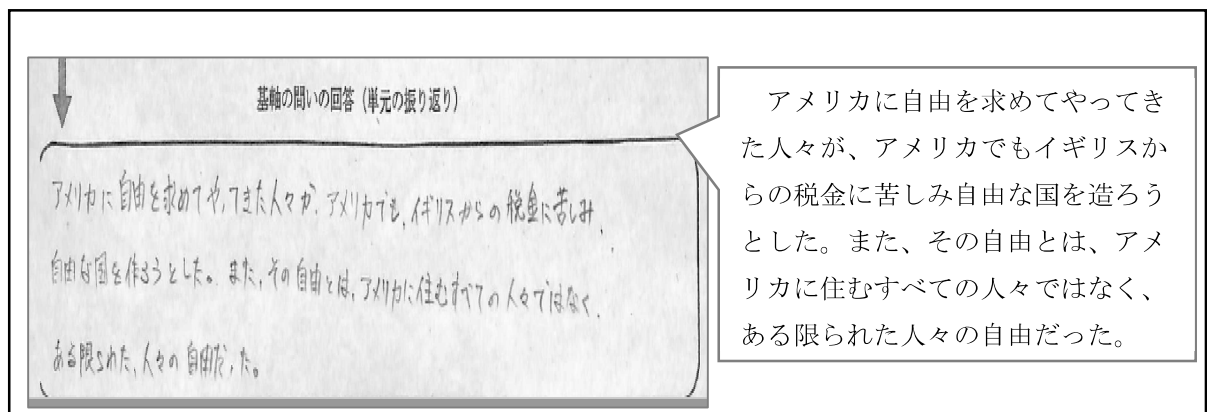 基軸の問いの回答（単元の振り返り）
アメリカに自由を求めてやってきた人々が、アメリカでも、イギリスからの税金に苦しみ、
自由な国を作ろうとした。また、その自由とは、アメリカに住むすべての人々ではなく、
ある限られた、人々の自由だった。
アメリカに自由を求めてやってき
た人々が、アメリカでもイギリスか
らの税金に苦しみ自由な国を造ろう
とした。また、その自由とは、アメ
リカに住むすべての人々ではなく、
ある限られた人々の自由だった。